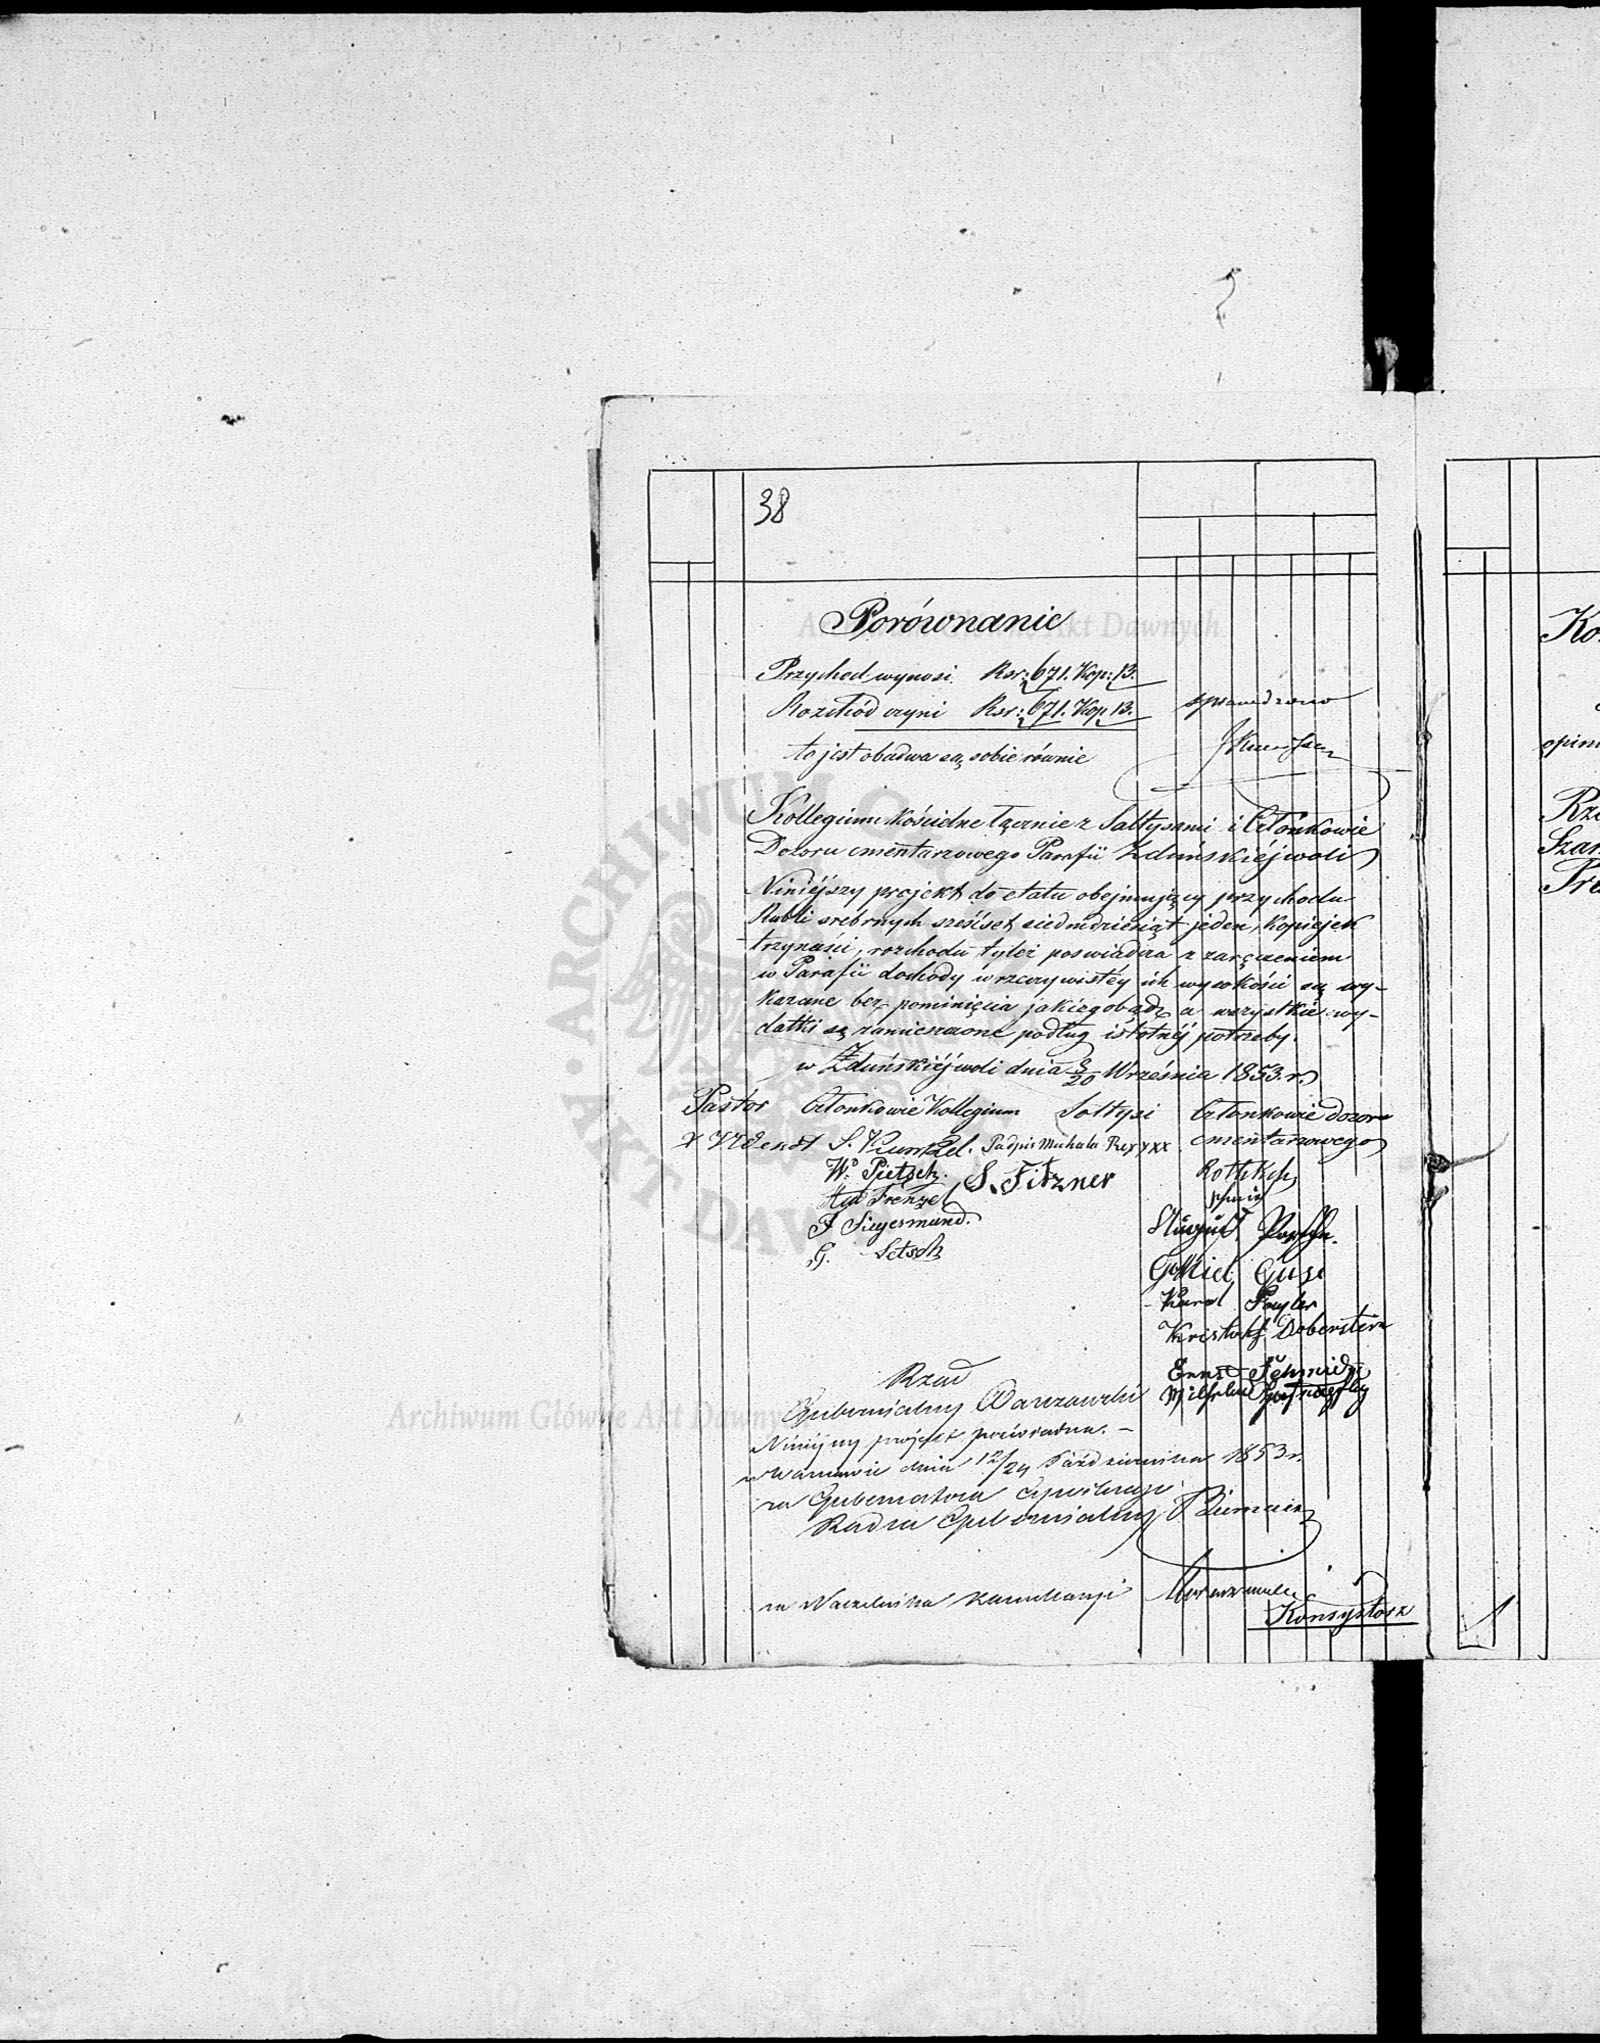 38
Porównanie
Przychod wynosi Rsr: 671. Kop: 13.
Rozchód czyni Rsr: 671. Kop 13.
sprawdzono
to jest obadwa są sobie równie
Kollegium Kościelne łącznie z Sołtysami i Członkowie
Dozoru cmentarzowego Parafii Zduńskiéjwoli
Niniéjszy projekt do etatu obejmujący przychodu
Rubli srebrnych sześćset siedmdziesiąt jeden, Kopiejek
trzynaści, rozchodu tyleż poswiadcza z zaręczeniem
w Parafii dochody w rzeczywistéy ich wysokości są wy-
kazane bez pominięcia jakiegobądź a wszystkie wy-
datki są zamieszczone podług istotnéj potrzeby.
w Zduńskiéjwoli dnia 8/20 Września 1853. r.
Pastor Członkowie Kollegium Sołtysi Członkowie dozoru
cmentarzowego
S. Kunkel. Podpis Michala xxx
W. Pietsch. S. Fitzner
Frenzel
Siegesmund.
G.
August
Gottlieb Guse
Karol
Kristof Doberstein
Ernst Schmidt
Wilhelm
Rząd
Gubernialny Warszawski
Niniejszy projekt poświadcza. -
w Warszawie dnia 12/24 Października 1853 r.
za Gubernatora Cywilnego
Radca Gubernialny
za Naczelnika Kancellaryi
Konsystorz
Ko
opin
Rz
Szan
Pre
Archiwum Główne Akt Dawnych
Archiwum Główne Akt Dawnych
ARCHIWUM
AKT DAW